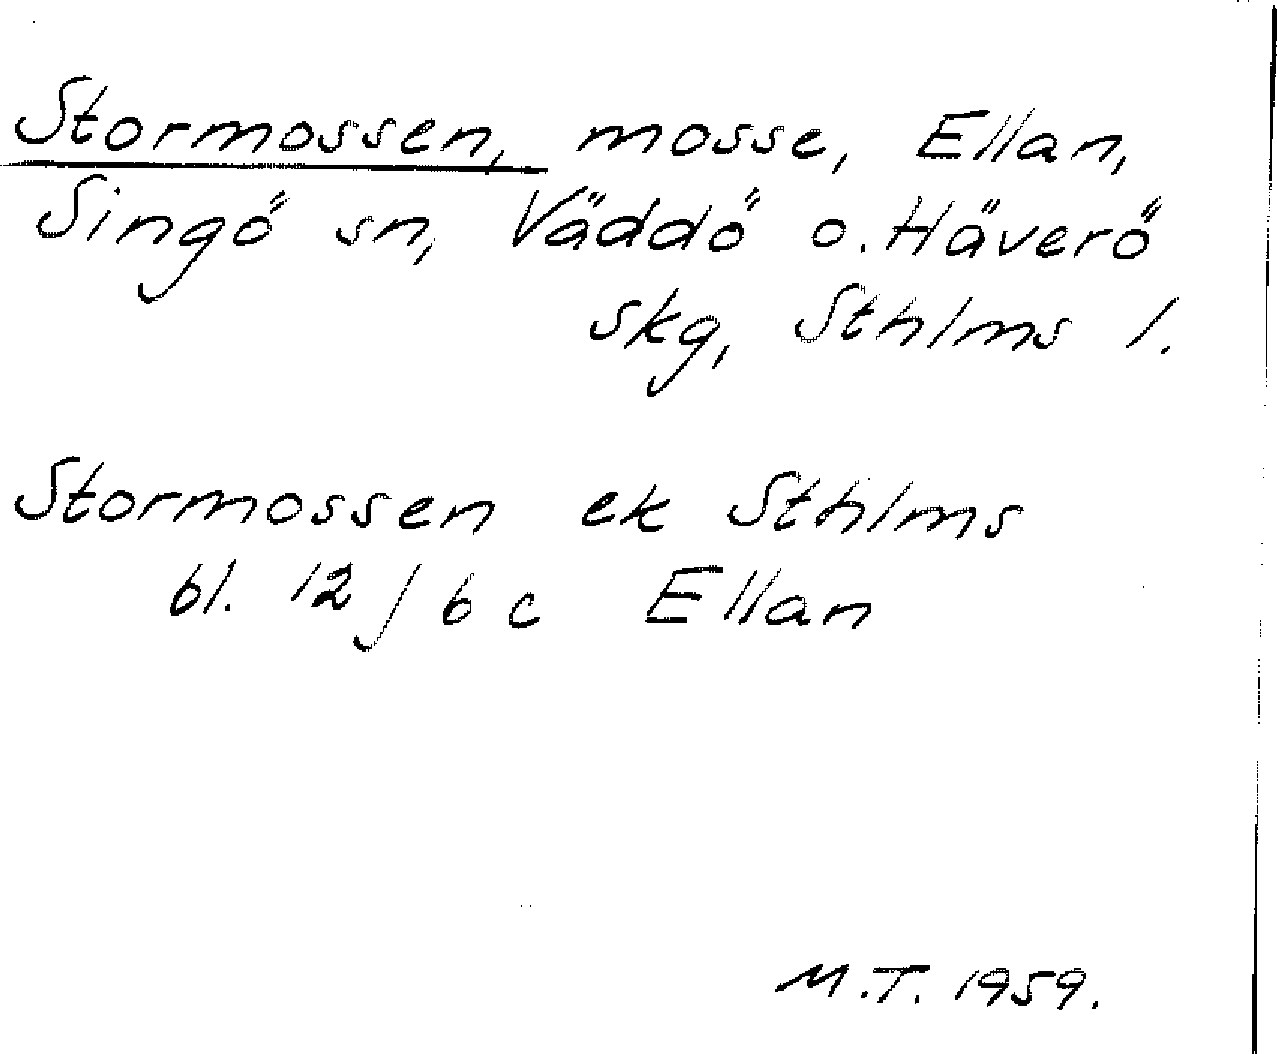 Stormossen, mosse, Ellan,
Singö sn, Väddö o. Häverö
skg, Sthlms l.
Stormossen ek Sthlms
bl. 12 / 6 c Ellan
M.T. 1959.